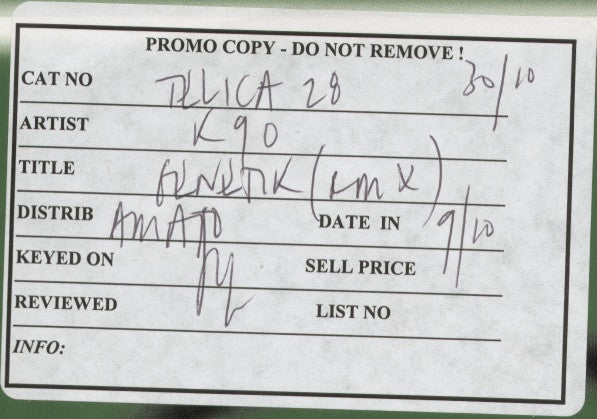 PROMO COPY - DO NOT REMOVE !
CAT NO TELICA 28 30/10
ARTIST K90
TITLE GENETIK (RMX)
DISTRIB AMATO DATE IN 9/10
KEYED ON SELL PRICE
REVIEWED LIST NO
INFO: